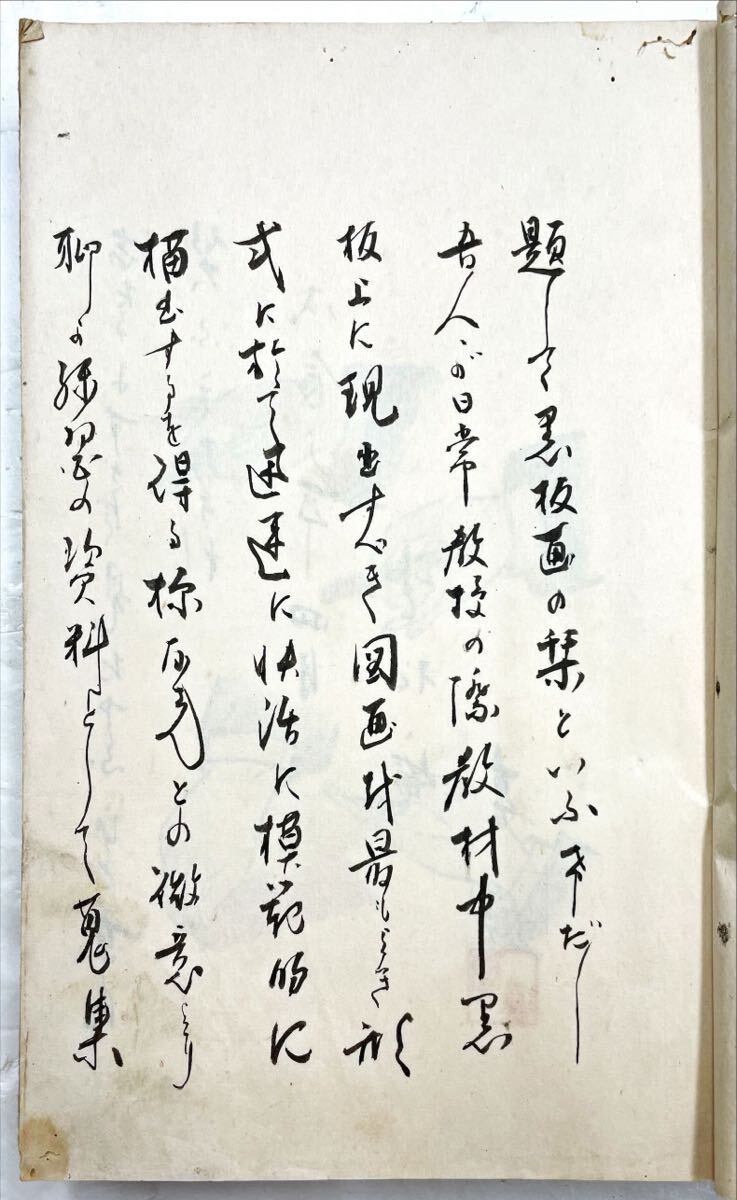 題して黒板画の栞といふ蓋だし
吾人が日常教授の際教材中黒
板上に現出すべき図画を最もよき形
式に於て迅速に快活に模範的に
描出するを得る様にとの微意より
聊か練習の資料として蒐集